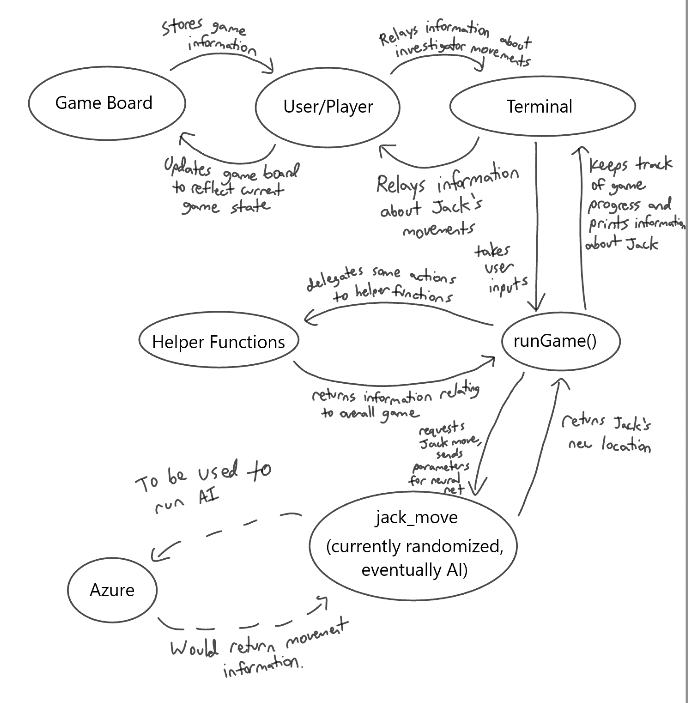 Stores game
information
Relays information about
investigator movements
Game Board
User/Player
Terminal
Updates game board
to reflect current
game state
Relays information
about Jack's
movements
keeps track
of game
progress and
prints information
about Jack
takes
user
inputs
delegates some actions
to helper functions
Helper Functions
runGame()
returns information relating
to overall game
requests
Jack move,
sends
parameters
for neural
net
returns Jack's
new location
To be used to
run AI
jack_move
(currently randomized,
eventually AI)
Azure
Would return movement
information.